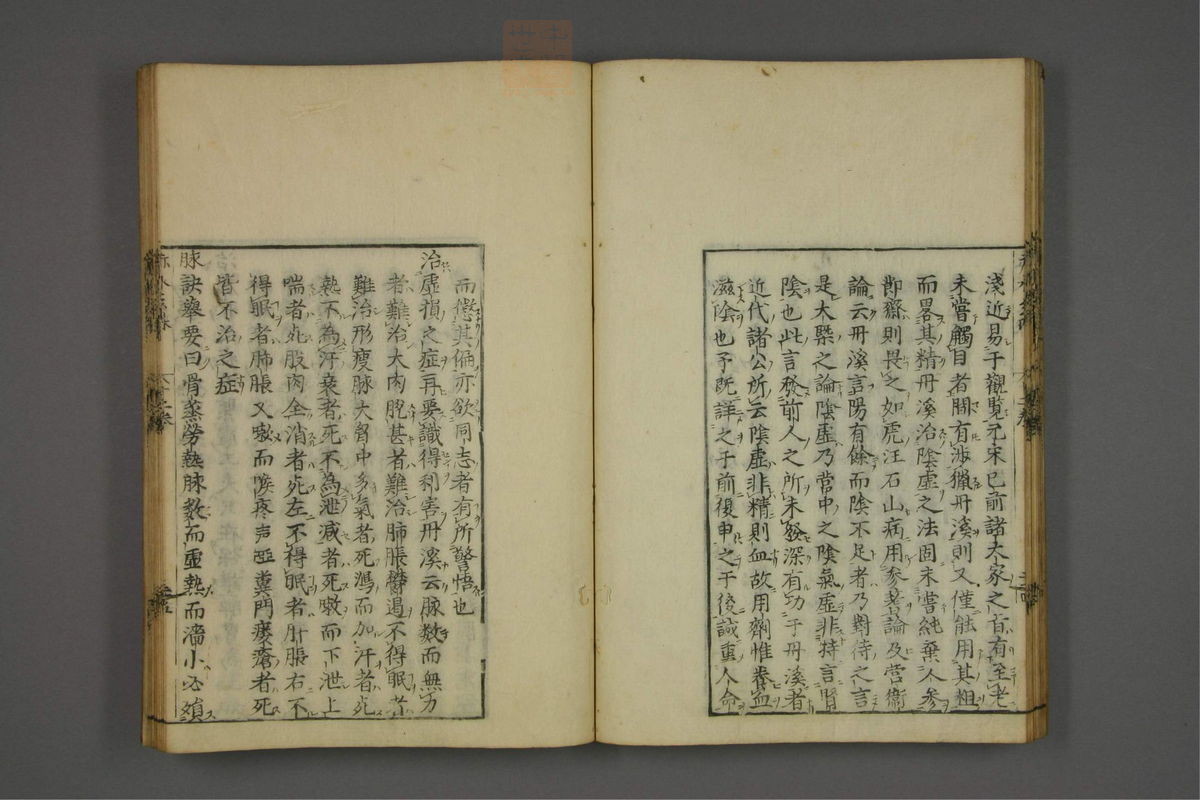 淺近易于觀覧元宋已前諸大家之旨有至老
未嘗觸目者間有渉獵丹溪則又僅能用其粗
而畧其精丹溪治陰虚之法固未嘗純棄人参
節齋則畏之如虎汪石山病用参茋論及営衛
論云丹溪言陽有餘而陰不足者乃對待之言
是大槩之論陰虚乃営中之陰氣虚非特言腎
陰也此言發前人之所未發深有功于丹溪者
近代諸公所云陰虚非精則血故用劑惟養血
滋陰也予既詳之于前復申之于後誠重人命
而懲其偏亦欲同志者有所警悟也
治虚損之症再要識得利害丹溪云脉数而無力
者難治大肉脱甚者難治肺脹鬱遏不得眠者
難治形瘦脉大胷中多氣者死瀉而加汗者死
熱不為汗衰者死不為泄减者死嗽而下泄上
喘者死股肉全消者死左不得眠者肝脹右不
得眠者肺脹又嗽而喉疼声啞糞門瘻瘡者死
皆不治之症
脉訣舉要曰骨蒸勞熱脉数而虚熱而濇小必殞